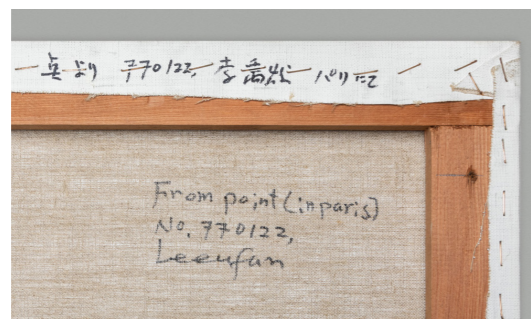 点より 770122, 李禹煥 パリにて
From point (in paris)
No. 770122,
Leeufan